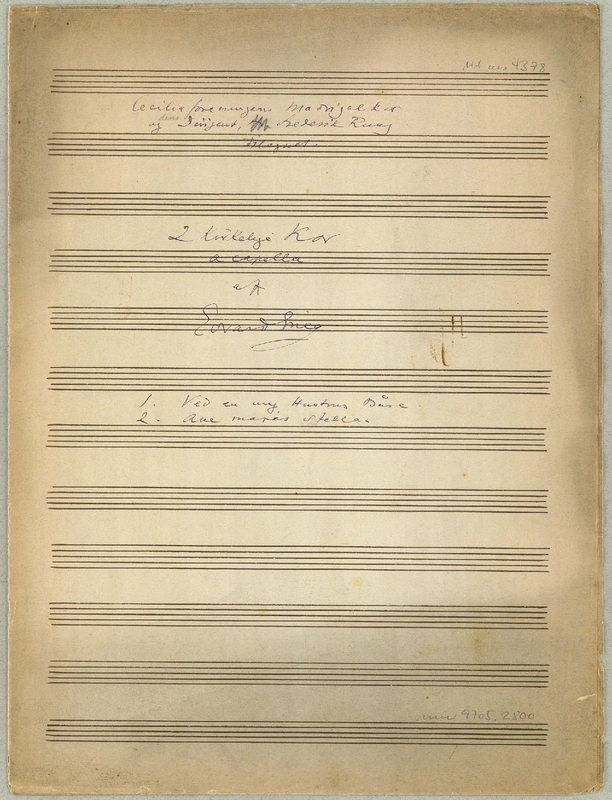 Mus ms 4378
Ceciliaforeningens Madrigalkor
og dens Dirigent, Frederik Rung
tilegnet.
2 kirkelige Kor
a capella
af
Edvard Grieg
1. Ved en ung Hustrus Båre
2. Ave maris stella.
9705.2800